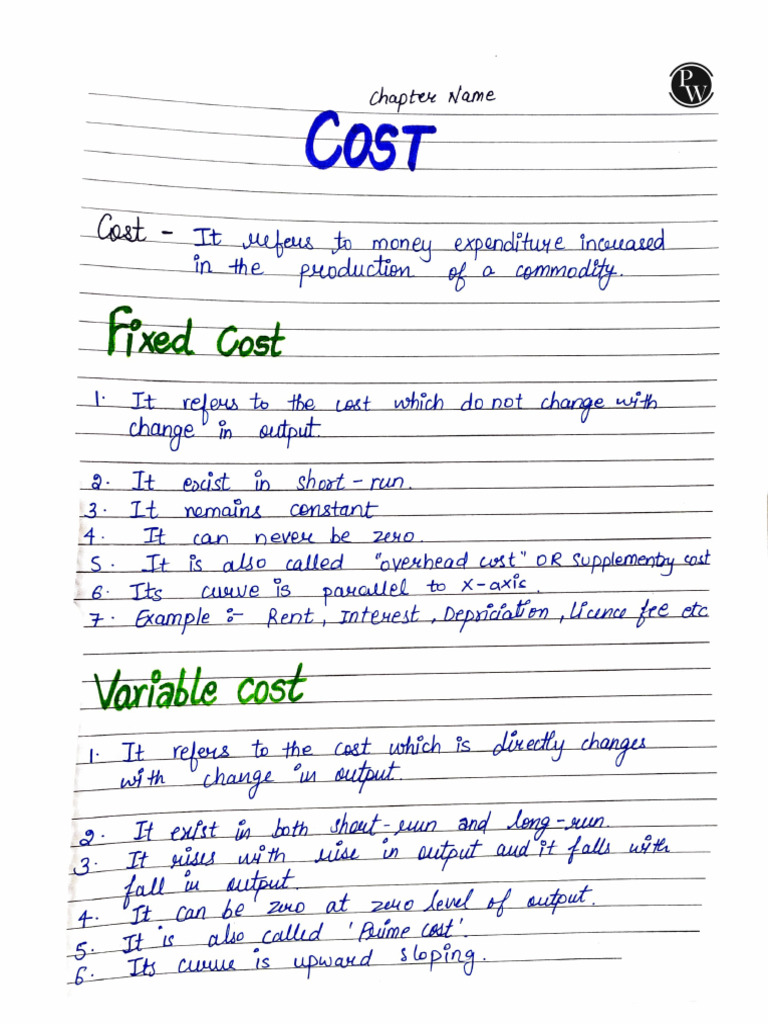 Chapter Name
PW
COST
Cost - It refers to money expenditure increased
in the production of a commodity.
Fixed Cost
1. It refers to the cost which do not change with
change in output.
2. It exist in short-run.
3. It remains constant
4. It can never be zero.
5. It is also called "overhead cost" OR Supplementry cost
6. Its curve is parallel to X-axis.
7. Example :- Rent, Interest, Depriciation, Licence fee etc
Variable cost
1. It refers to the cost which is directly changes
with change in output.
2. It exist in both short-run and long-run.
3. It rises with rise in output and it falls with
fall in output.
4. It can be zero at zero level of output.
5. It is also called 'Prime cost'.
6. Its curve is upward sloping.